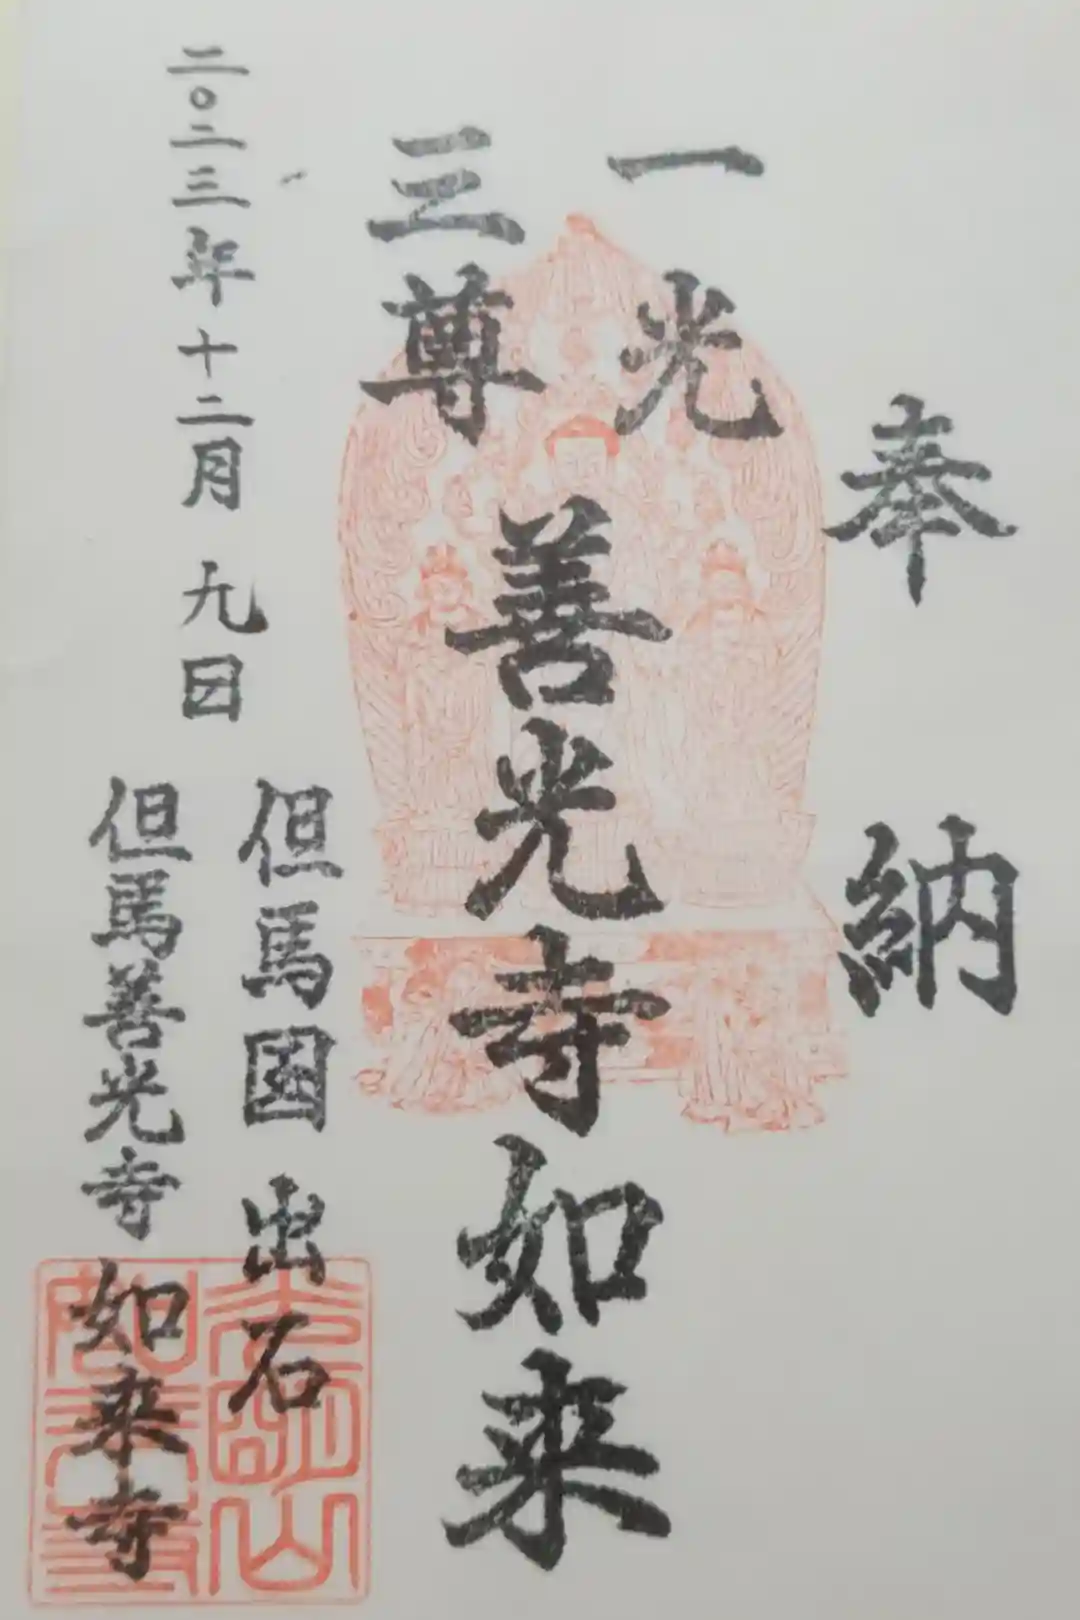 奉納
一光
三尊
善光寺如来
二〇二三年十二月九日
但馬国出石
但馬善光寺如来寺